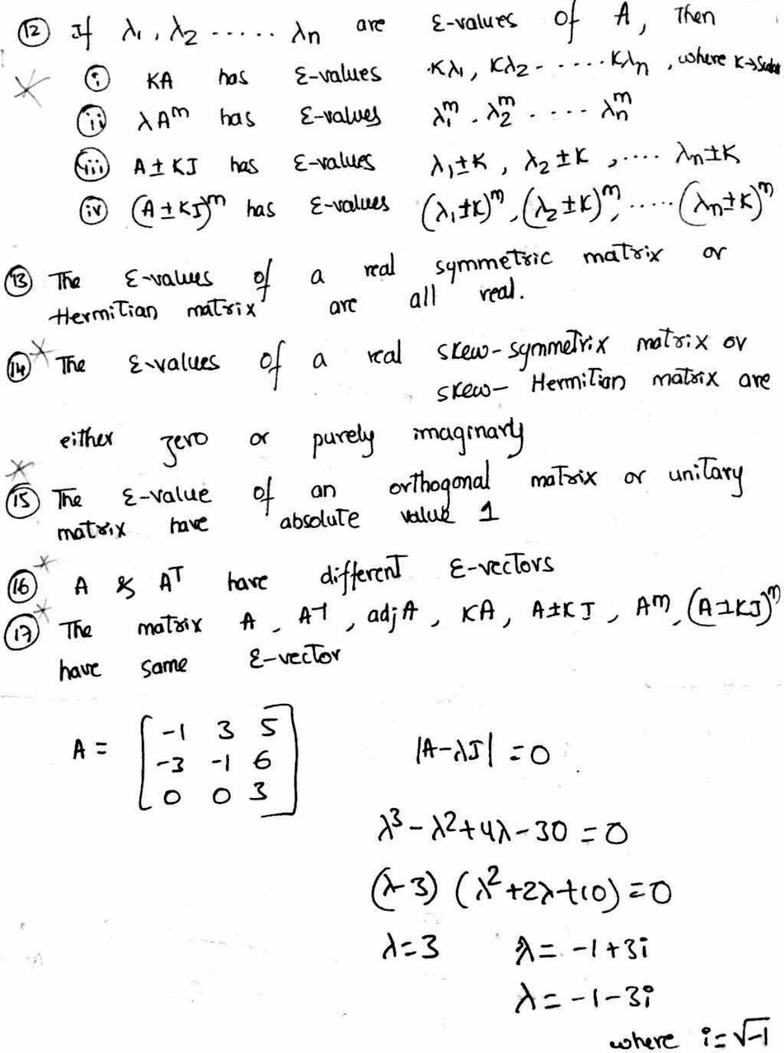 ⑫ If λ₁, λ₂ ...... λn are ε-values of A, Then
ⓘ KA has ε-values Kλ₁, Kλ₂ ...... Kλn, where K→Scalar
(ii) λA^m has ε-values λ₁^m, λ₂^m ..... λn^m
(iii) A±KI has ε-values λ₁±K, λ₂±K, .... λn±K
(iv) (A±KI)^m has ε-values (λ₁±K)^m, (λ₂±K)^m, ..... (λn±K)^m
⑬ The ε-values of a real symmetric matrix or
Hermitian matrix are all real.
⑭ * The ε-values of a real skew-symmetrix matrix or
skew- Hermitian matrix are
either zero or purely imaginary
*
⑮ The ε-value of an orthogonal matrix or unitary
matrix have absolute value 1
⑯ * A & A^T have different ε-vectors
⑰ * The matrix A, A^-1, adj A, KA, A±KI, A^m, (A±KI)^m
have same ε-vector
A = [-1 3 5
-3 -1 6
0 0 3]
|A-λI| = 0
λ³ - λ² + 4λ - 30 = 0
(λ-3) (λ²+2λ+10) = 0
λ=3 λ = -1+3i
λ = -1-3i
where i=√-1